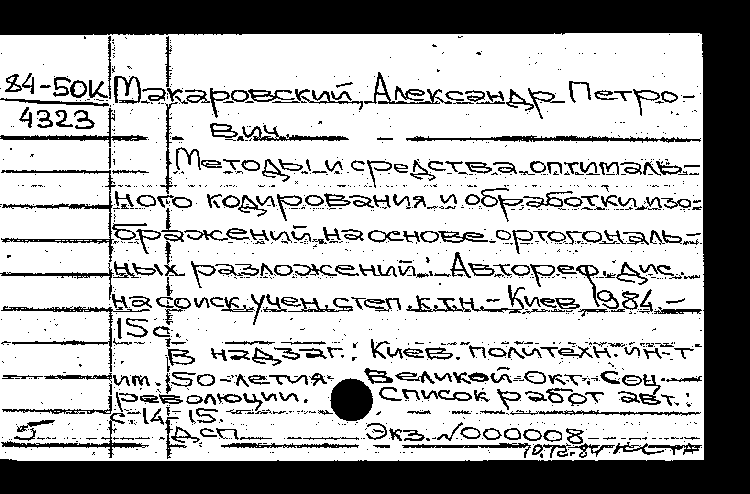 84-50К Макаровский, Александр Петро-
4323
вич.
Методы и средства оптималь-
ного кодирования и обработки изо-
бражений на основе ортогональ-
ных разложений : Автореф. дис.
на соиск. учен. степ. к.т.н. - Киев, 1984. -
15 с.
В надзаг.: Киев. политехн. ин-т
им. 50-летия Великой Окт. Соц.
революции. Список работ авт.:
с. 14-15.
5 ДСП Экз. №000008
10.12.84